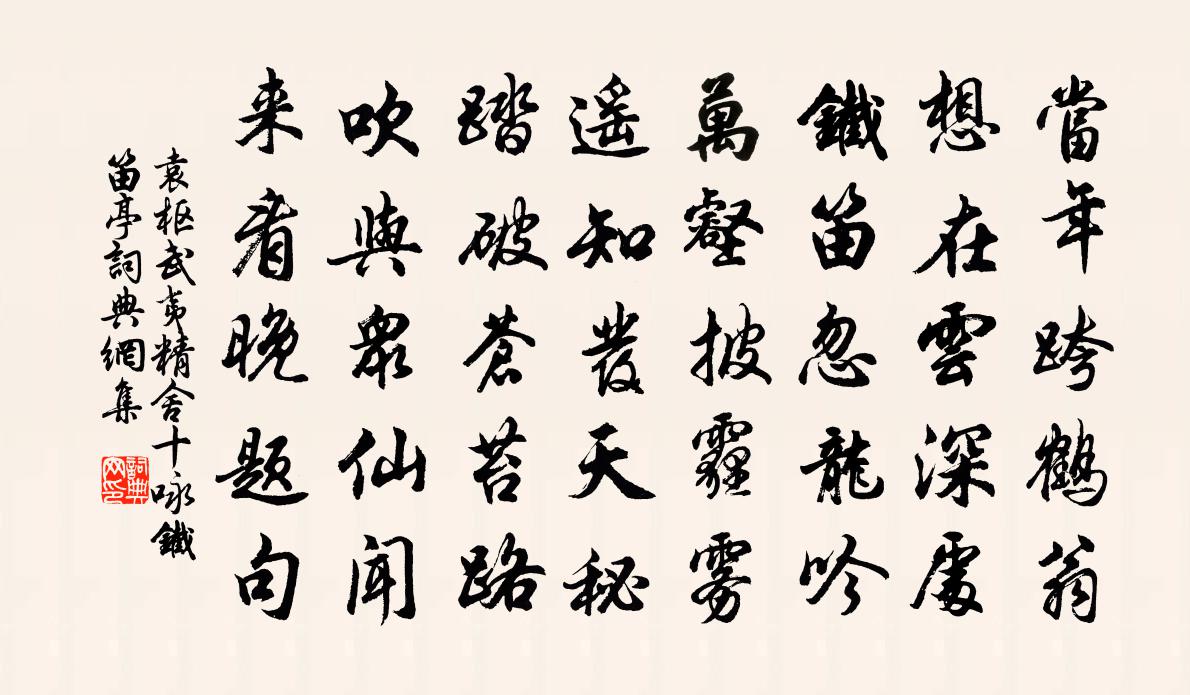 當年跨鶴翁
想在雲深處
鐵笛忽龍吟
萬壑披霾雾
遥知發天秘
踏破蒼苔路
吹與眾仙聞
来看晚题句
袁枢武夷精舍十咏鐵
笛亭詞典網集
詞典
网印